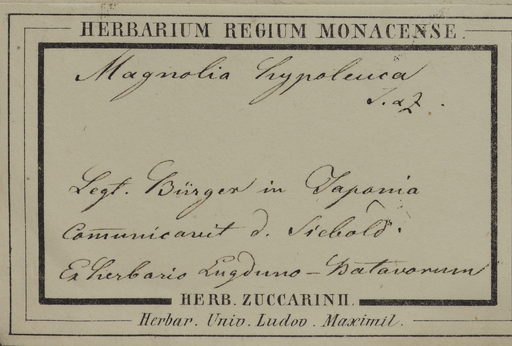 HERBARIUM REGIUM MONACENSE.
Magnolia hypoleuca
S. & Z.
Legt. Bürger in Japonia
Comunicavit d. Siebold.
Ex herbario Lugduno-Batavorum
HERB. ZUCCARINII.
Herbar. Univ. Ludov. Maximil.